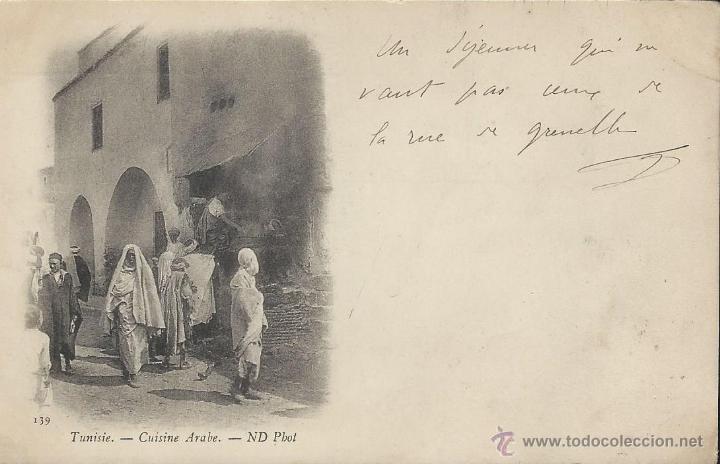 Un déjeuner qui ne
vaut pas ceux de
la rue de grenelle
139
Tunisie. — Cuisine Arabe. — ND Phot
www.todocoleccion.net